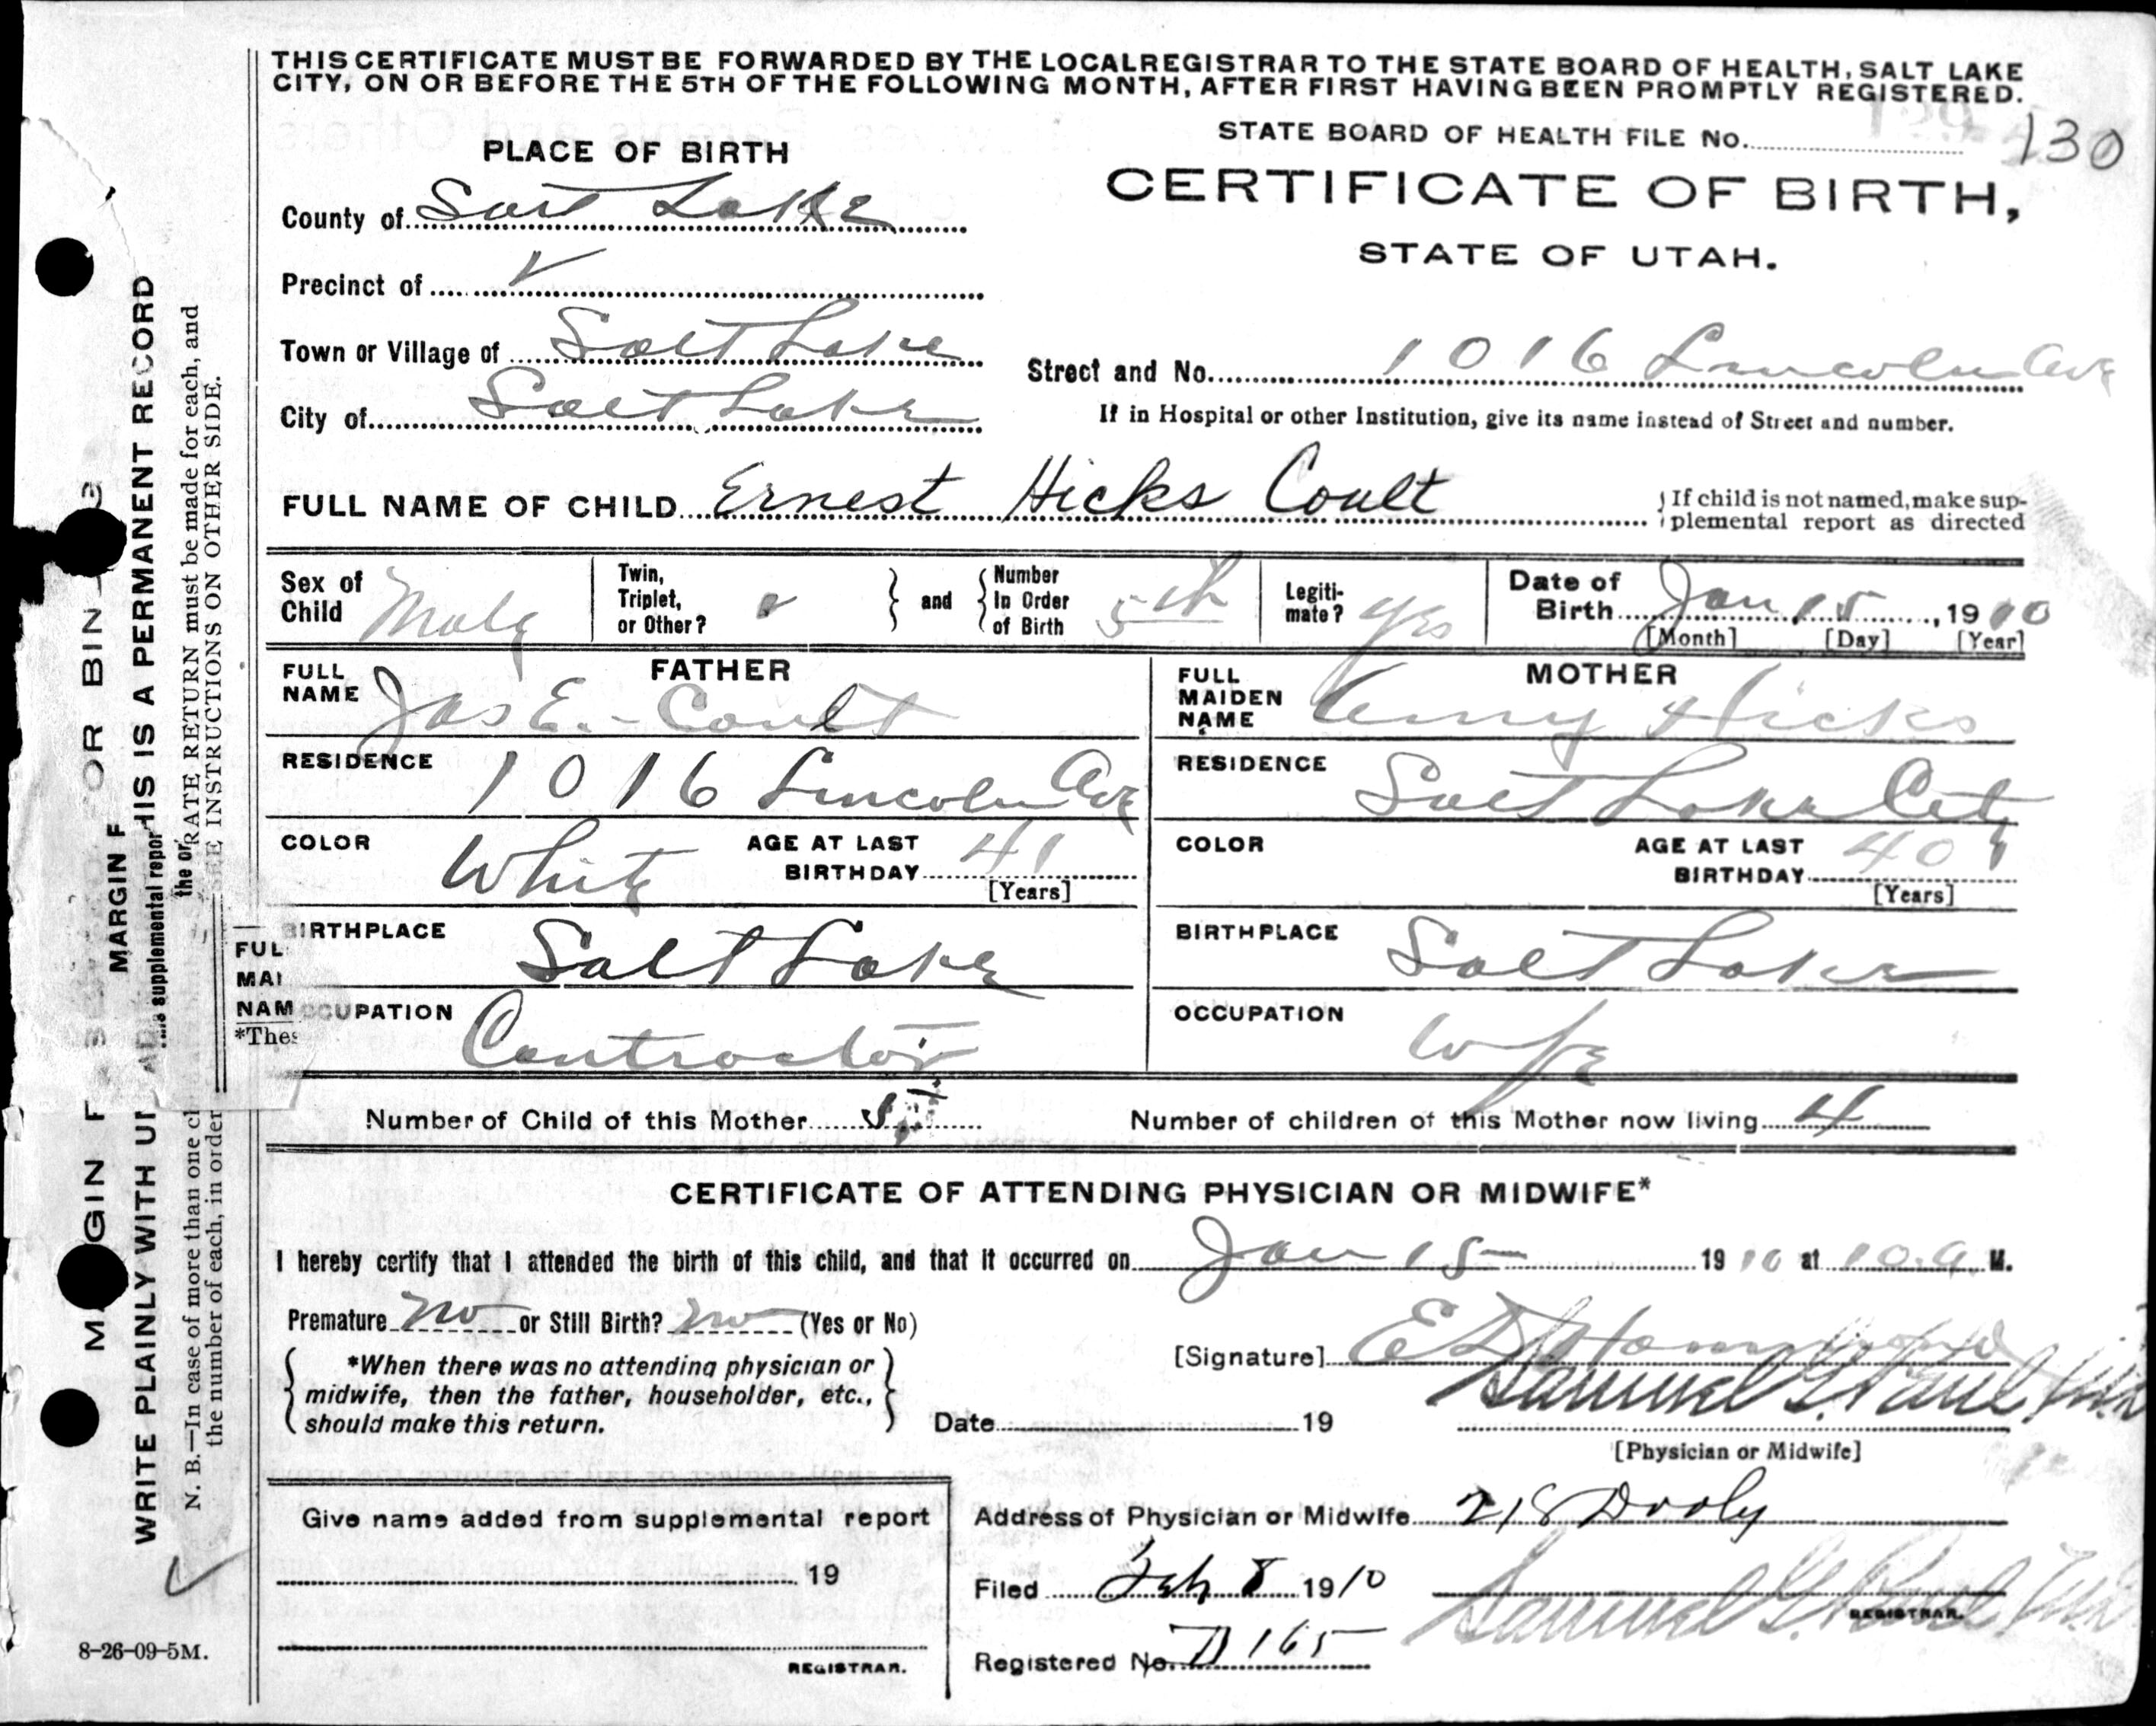 THIS CERTIFICATE MUST BE FORWARDED BY THE LOCAL REGISTRAR TO THE STATE BOARD OF HEALTH, SALT LAKE
CITY, ON OR BEFORE THE 5TH OF THE FOLLOWING MONTH, AFTER FIRST HAVING BEEN PROMPTLY REGISTERED.
STATE BOARD OF HEALTH FILE No. 130
PLACE OF BIRTH
CERTIFICATE OF BIRTH,
STATE OF UTAH.
County of Salt Lake
Precinct of
Town or Village of Salt Lake
Street and No. 1016 Lincoln Ave
City of Salt Lake
If in Hospital or other Institution, give its name instead of Street and number.
FULL NAME OF CHILD Ernest Hicks Coult
If child is not named, make sup-
plemental report as directed
Sex of Child Male
Twin, Triplet, or Other?
and
Number In Order of Birth 5th
Legiti-mate? Yes
Date of Birth Jan 15, 1910
[Month] [Day] [Year]
FATHER
FULL NAME Jas E. Coult
RESIDENCE 1016 Lincoln Ave
COLOR White
AGE AT LAST BIRTHDAY 41
[Years]
BIRTHPLACE Salt Lake
OCCUPATION Contractor
MOTHER
FULL MAIDEN NAME Amy Hicks
RESIDENCE Salt Lake City
COLOR
AGE AT LAST BIRTHDAY 40
[Years]
BIRTHPLACE Salt Lake
OCCUPATION Wife
Number of Child of this Mother 5
Number of children of this Mother now living 4
CERTIFICATE OF ATTENDING PHYSICIAN OR MIDWIFE*
I hereby certify that I attended the birth of this child, and that it occurred on Jan 15 1910 at 10 a. M.
Premature no or Still Birth? no (Yes or No)
*When there was no attending physician or
midwife, then the father, householder, etc.,
should make this return.
[Signature] E D Hammond
Samuel G. Paul
Date 19
[Physician or Midwife]
Give name added from supplemental report
19
REGISTRAR.
Address of Physician or Midwife 218 Dooly
Filed Feb 8 1910
Samuel G. Paul
REGISTRAR.
Registered No. D 165
8-26-09-5M.
MARGIN F
OR BIN
WRITE PLAINLY WITH
THIS IS A PERMANENT RECORD
N. B.—In case of more than one
RATE RETURN must be made for each, and
the number of each, in order
SEE INSTRUCTIONS ON OTHER SIDE.
MARGIN F
supplemental repor
the or
FUL
MAI
NAM
*Thes